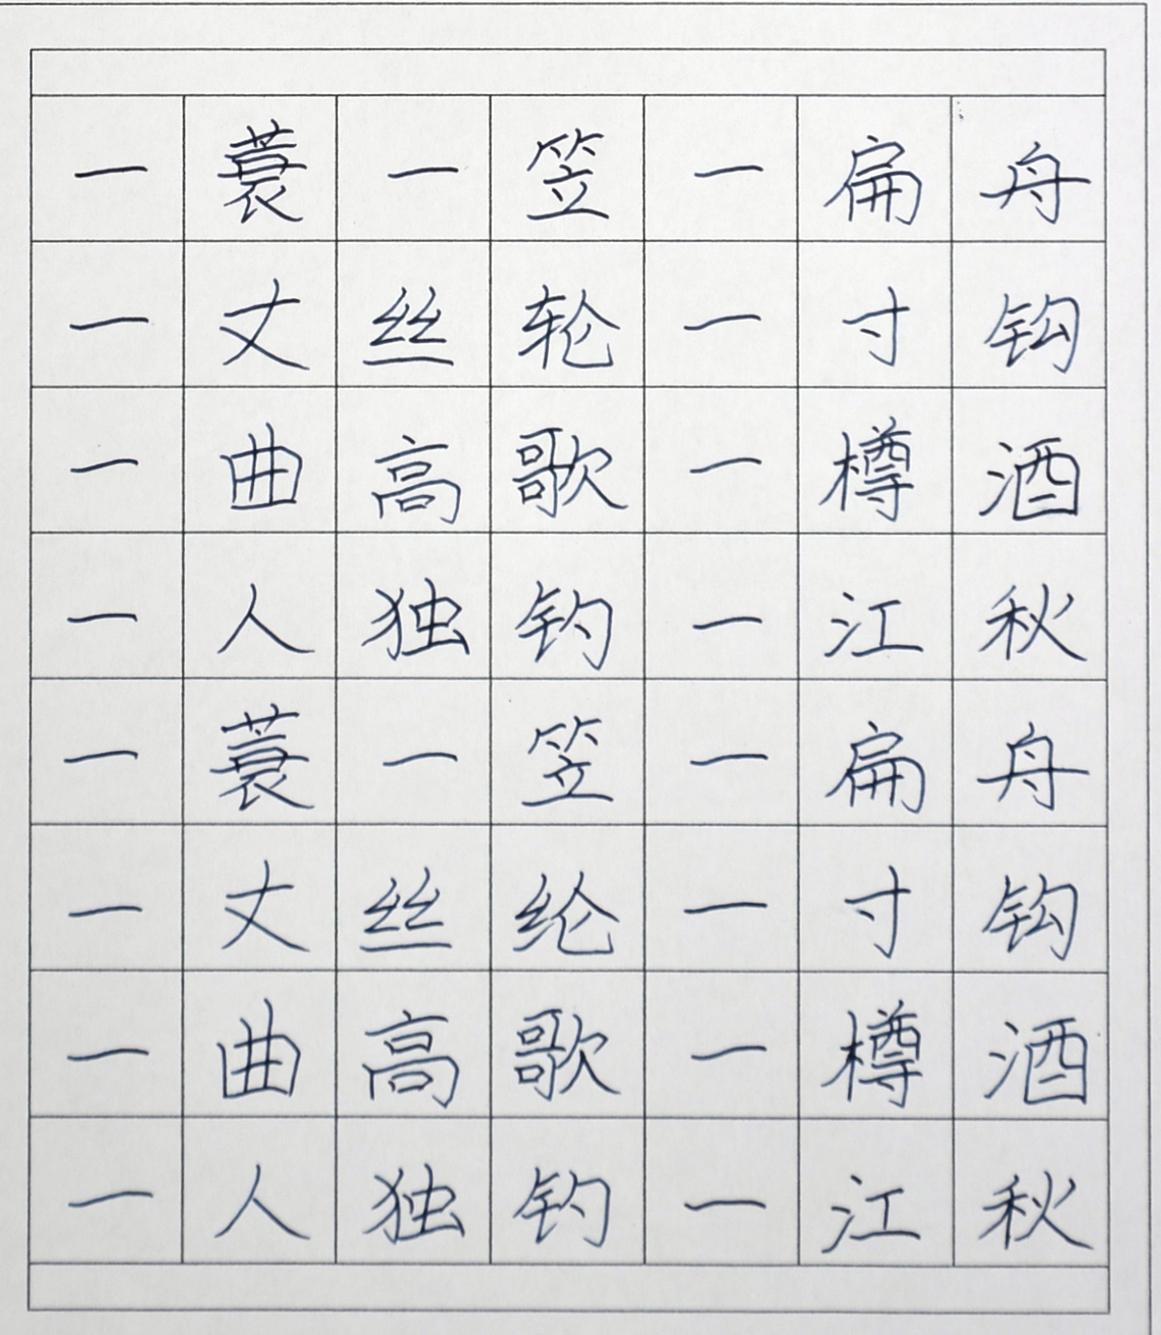 一蓑一笠一扁舟
一丈丝轮一寸钩
一曲高歌一樽酒
一人独钓一江秋
一蓑一笠一扁舟
一丈丝纶一寸钩
一曲高歌一樽酒
一人独钓一江秋